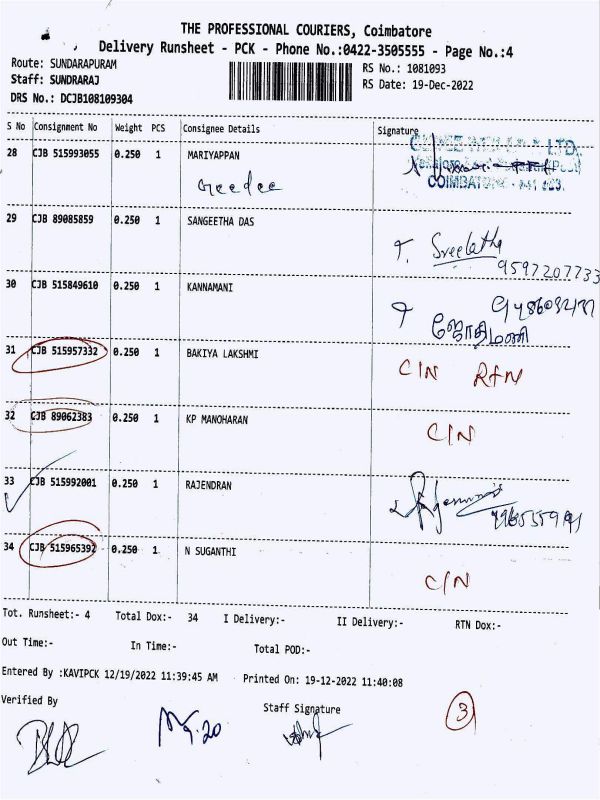 THE PROFESSIONAL COURIERS, Coimbatore
Delivery Runsheet - PCK - Phone No.:0422-3505555 - Page No.:4
Route: SUNDARAPURAM RS No.: 1081093
Staff: SUNDRARAJ RS Date: 19-Dec-2022
DRS No.: DCJB108109304
S No Consignment No Weight PCS Consignee Details Signature
28 CJB 515993055 0.250 1 MARIYAPPAN
Geedee
COIMBATORE
29 CJB 89085859 0.250 1 SANGEETHA DAS
T. Sreelatha
9597207733
30 CJB 515849610 0.250 1 KANNAMANI
ஜோதிமணி
31 CJB 515957332 0.250 1 BAKIYA LAKSHMI C/N RFN
32 CJB 89062383 0.250 1 KP MANOHARAN C/N
33 CJB 515992001 0.250 1 RAJENDRAN
34 CJB 515965392 0.250 1 N SUGANTHI C/N
Tot. Runsheet:- 4 Total Dox:- 34 I Delivery:- II Delivery:- RTN Dox:-
Out Time:- In Time:- Total POD:-
Entered By :KAVIPCK 12/19/2022 11:39:45 AM Printed On: 19-12-2022 11:40:08
Verified By Staff Signature
3